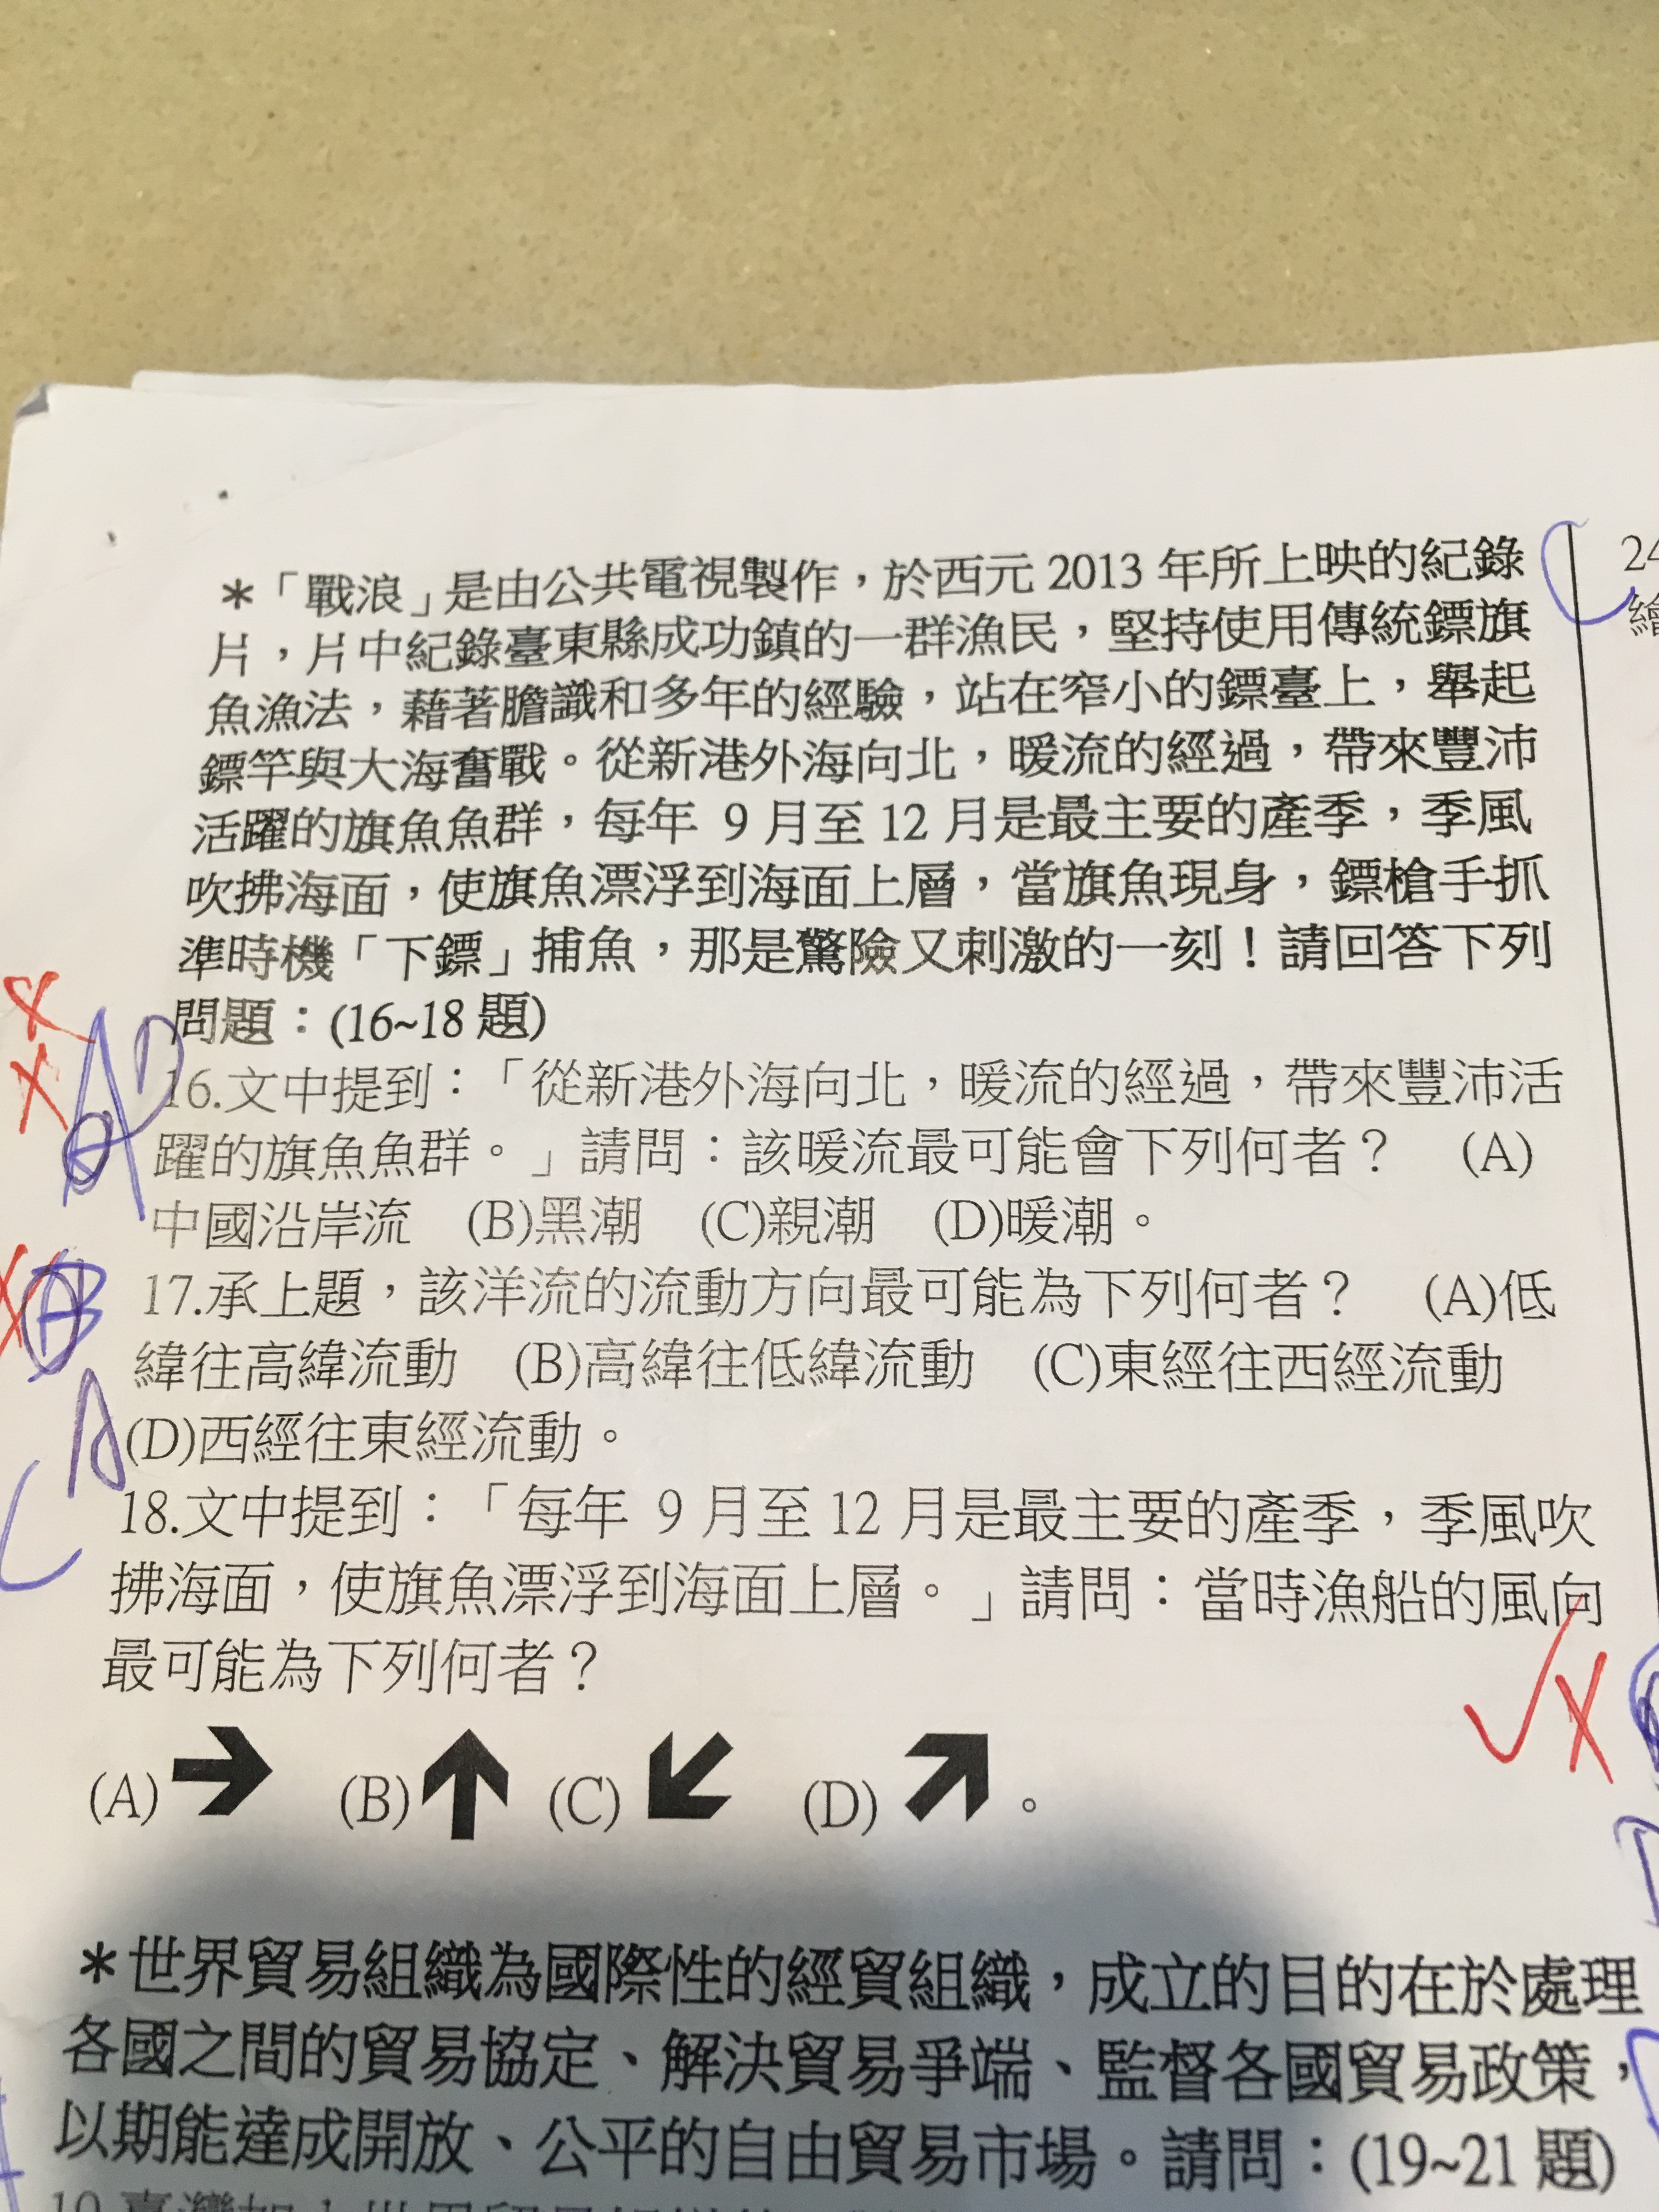 ＊「戰浪」是由公共電視製作，於西元 2013 年所上映的紀錄
片，片中紀錄臺東縣成功鎮的一群漁民，堅持使用傳統鏢旗
魚漁法，藉著膽識和多年的經驗，站在窄小的鏢臺上，舉起
鏢竿與大海奮戰。從新港外海向北，暖流的經過，帶來豐沛
活躍的旗魚魚群，每年 9 月至 12 月是最主要的產季，季風
吹拂海面，使旗魚漂浮到海面上層，當旗魚現身，鏢槍手抓
準時機「下鏢」捕魚，那是驚險又刺激的一刻！請回答下列
問題：(16~18 題)
16.文中提到：「從新港外海向北，暖流的經過，帶來豐沛活
躍的旗魚魚群。」請問：該暖流最可能會下列何者？ (A)
中國沿岸流 (B)黑潮 (C)親潮 (D)暖潮。
B
17.承上題，該洋流的流動方向最可能為下列何者？ (A)低
緯往高緯流動 (B)高緯往低緯流動 (C)東經往西經流動
A
(D)西經往東經流動。
C
18.文中提到：「每年 9 月至 12 月是最主要的產季，季風吹
拂海面，使旗魚漂浮到海面上層。」請問：當時漁船的風向
最可能為下列何者？
(A) (B) (C) (D) 。
＊世界貿易組織為國際性的經貿組織，成立的目的在於處理
各國之間的貿易協定、解決貿易爭端、監督各國貿易政策，
以期能達成開放、公平的自由貿易市場。請問：(19~21 題)
24
繪